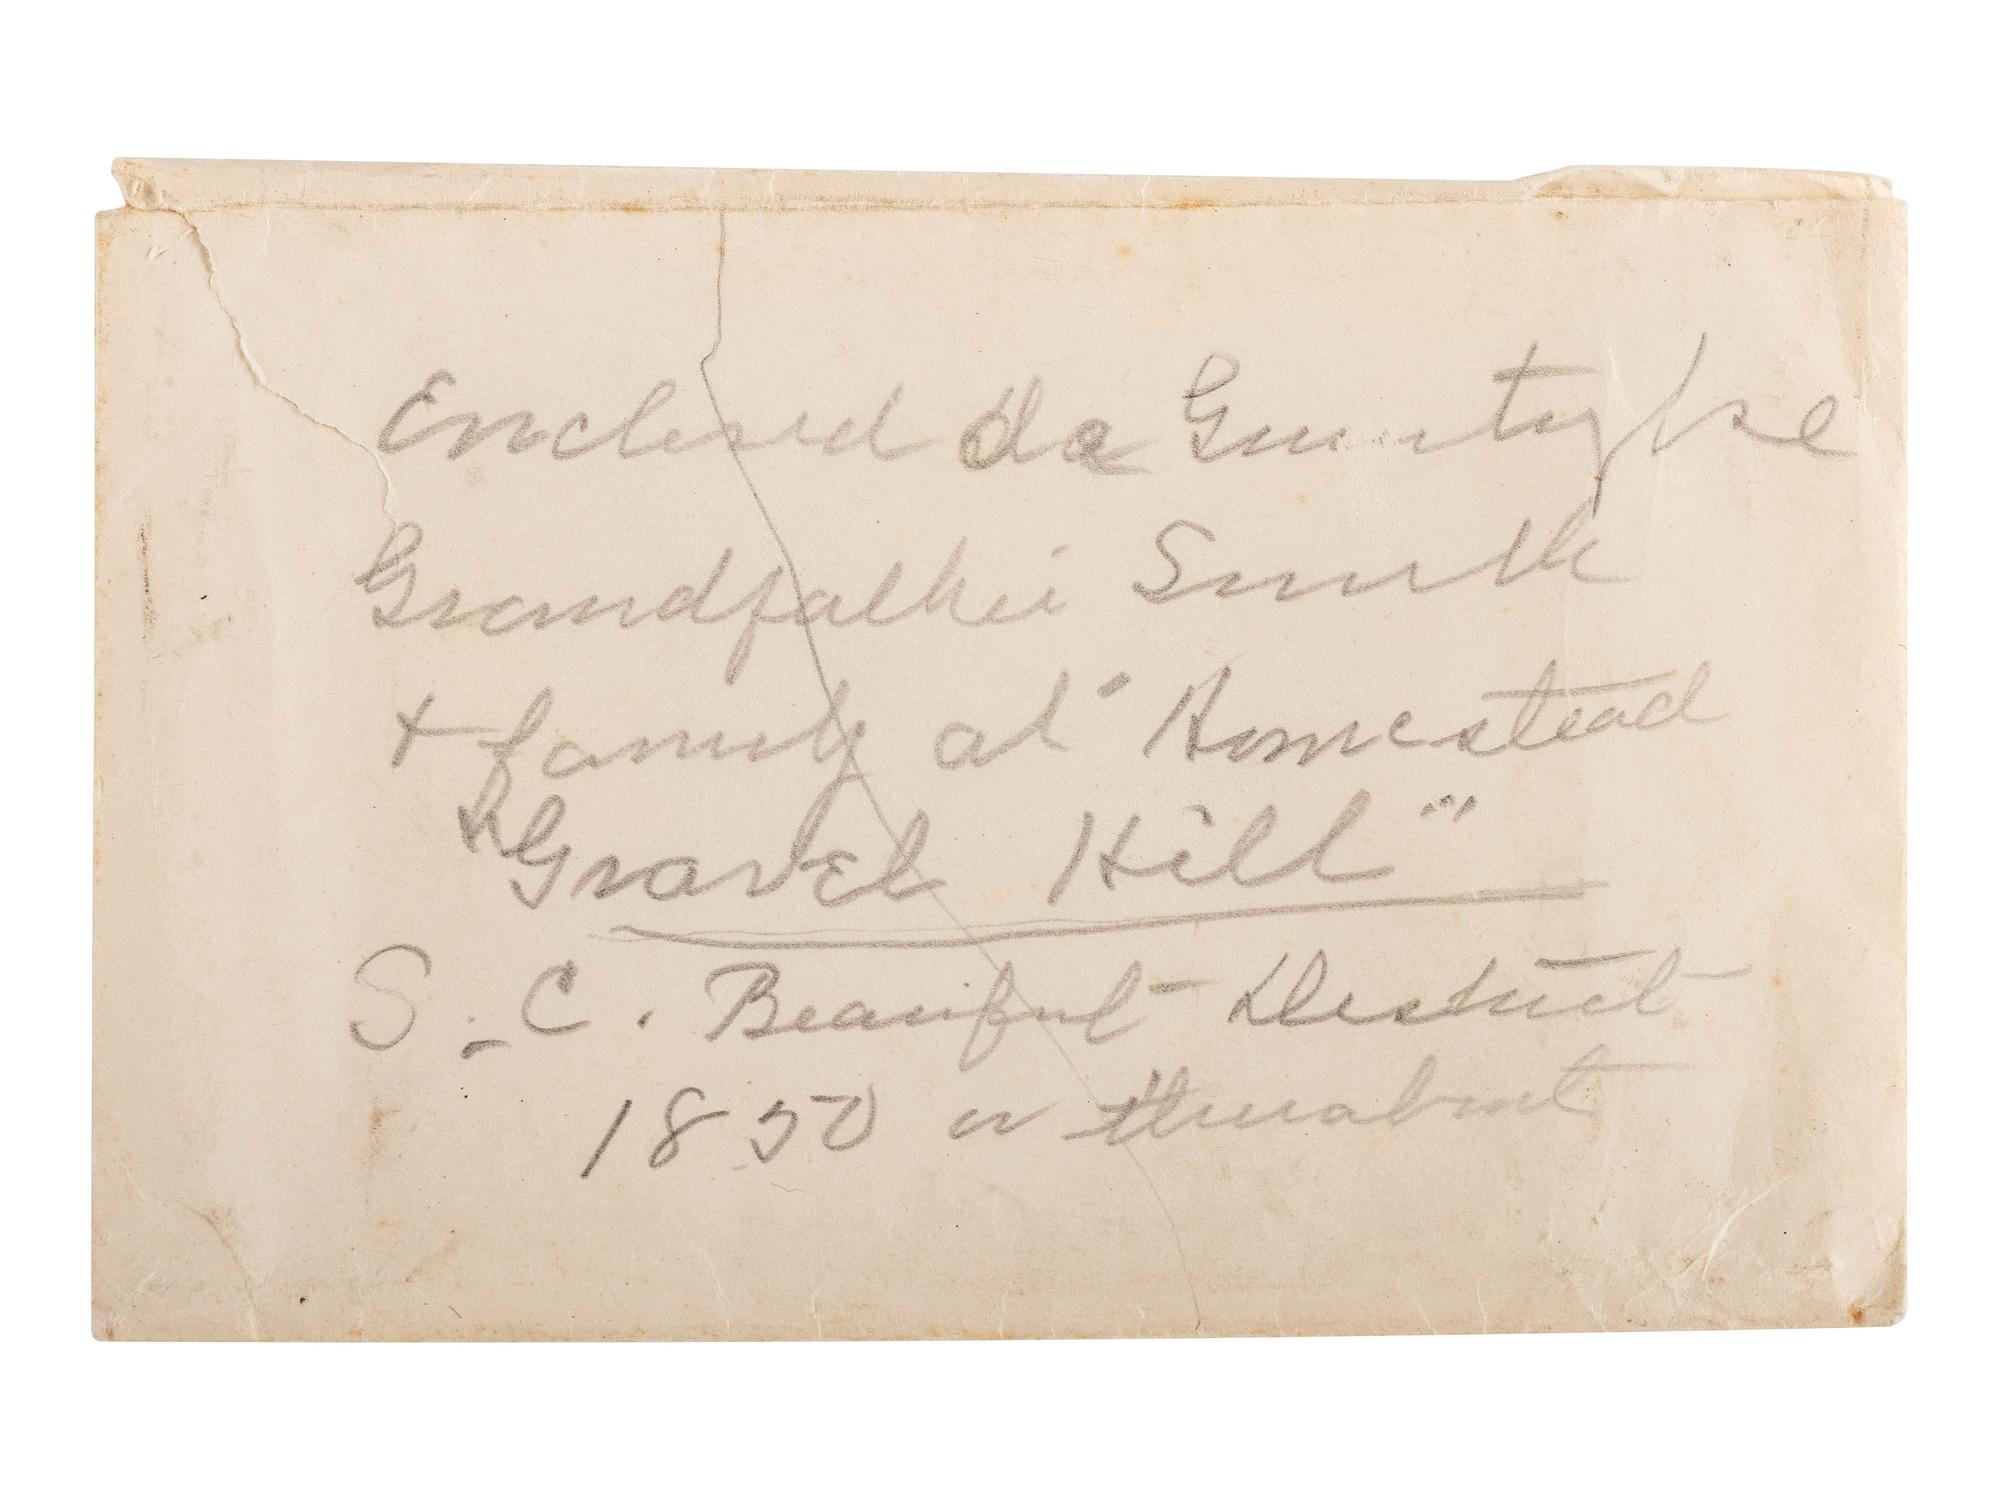 Enclosed
Grandfather Smith
+ family at "Homestead
"Gravel Hill""
S. C. Beaufort District
1850 or thereabout